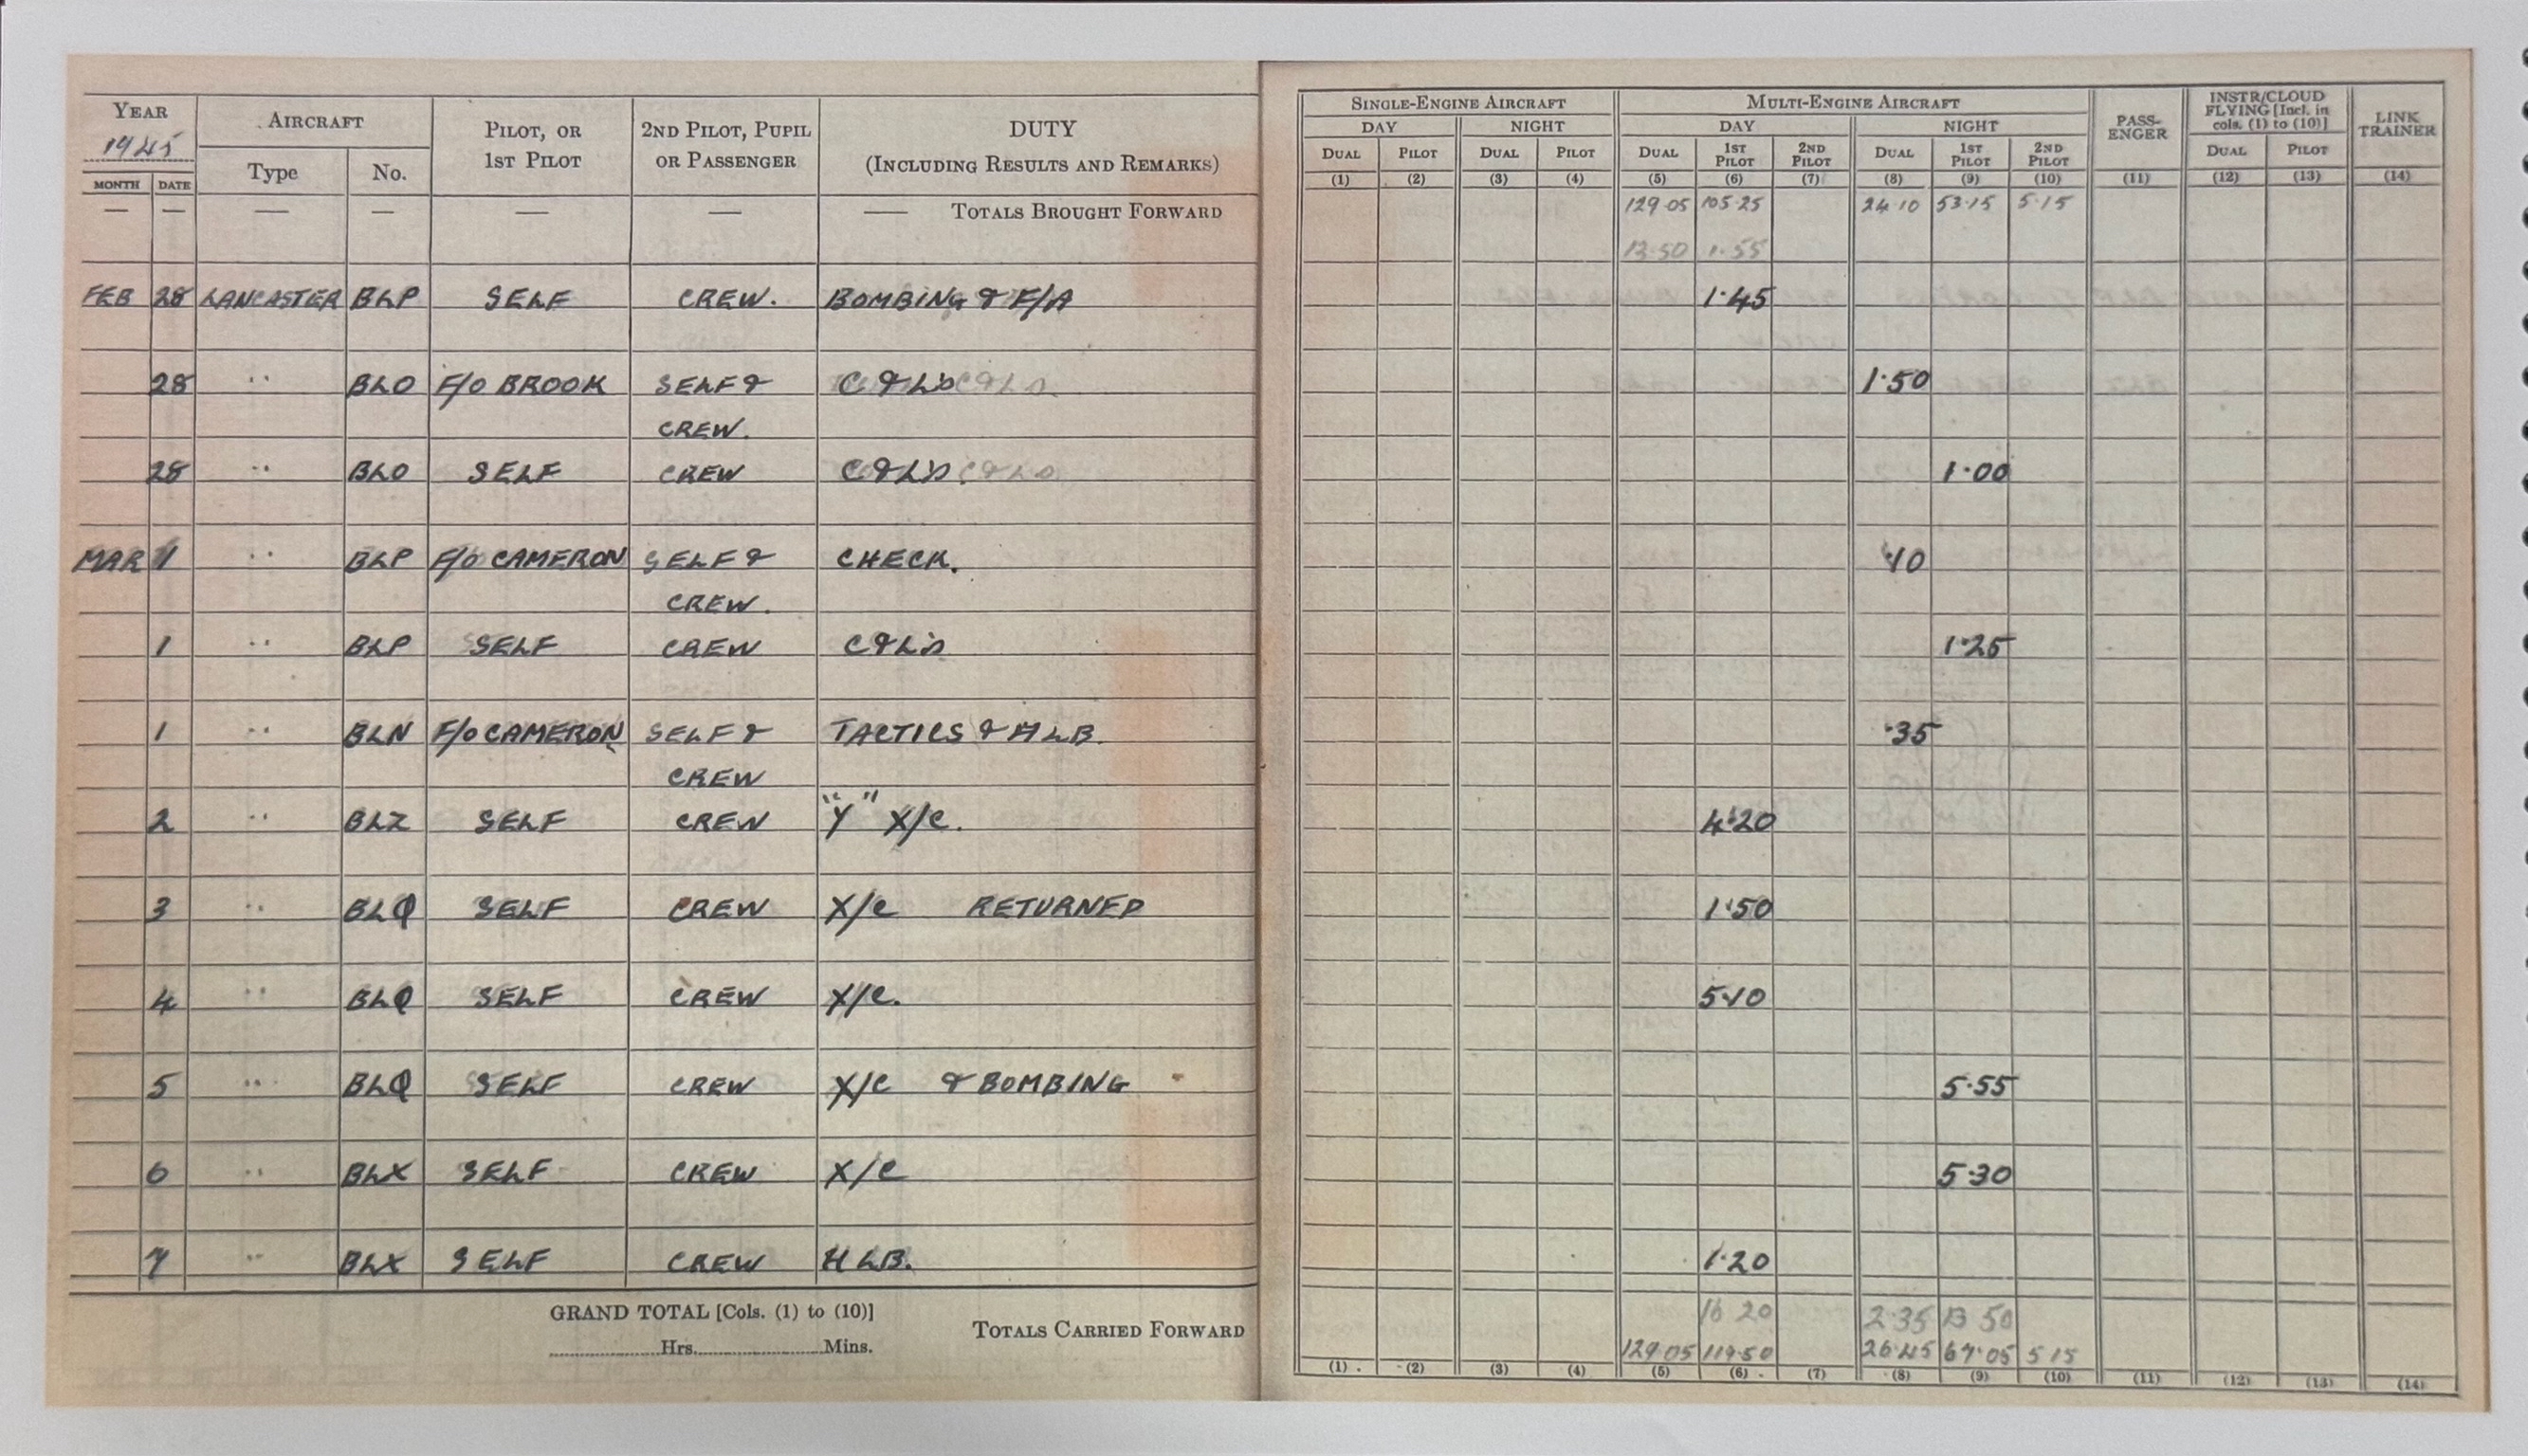 YEAR 1945 AIRCRAFT PILOT, OR 1ST PILOT 2ND PILOT, PUPIL OR PASSENGER DUTY (INCLUDING RESULTS AND REMARKS)
MONTH DATE Type No.
— — — — — — — TOTALS BROUGHT FORWARD
FEB 28 LANCASTER BLP SELF CREW. BOMBING & F/A
28 " BLO F/O BROOK SELF & C & L's C & L's
CREW.
28 " BLO SELF CREW C & L's C & L's
MAR 1 " BLP F/O CAMERON SELF & CHECK.
CREW.
1 " BLP SELF CREW C & L's
1 " BLN F/O CAMERON SELF & TACTICS & HLB.
CREW
2 " BLZ SELF CREW "Y" X/C.
3 " BLQ SELF CREW X/C RETURNED
4 " BLQ SELF CREW X/C.
5 " BLQ SELF CREW X/C & BOMBING
6 " BLX SELF CREW X/C
7 " BLX SELF CREW HLB.
GRAND TOTAL [Cols. (1) to (10)]
Hrs. Mins.
TOTALS CARRIED FORWARD
SINGLE-ENGINE AIRCRAFT MULTI-ENGINE AIRCRAFT PASS-ENGER INSTR/CLOUD FLYING [Incl. in cols. (1) to (10)] LINK TRAINER
DAY NIGHT DAY NIGHT
DUAL PILOT DUAL PILOT DUAL 1ST PILOT 2ND PILOT DUAL 1ST PILOT 2ND PILOT DUAL PILOT
(1) (2) (3) (4) (5) (6) (7) (8) (9) (10) (11) (12) (13) (14)
129.05 105.25 24.10 53.15 5.15
13.50 1.55
1.45
1.50
1.00
.40
1.25
.35
4.20
1.50
5.10
5.55
5.30
1.20
16 20 2.35 13 50
129.05 119.50 26.45 67.05 5 15
(1) (2) (3) (4) (5) (6) (7) (8) (9) (10) (11) (12) (13) (14)